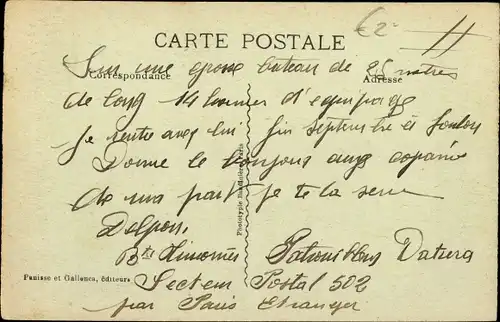 €2-
CARTE POSTALE
Correspondance
Adresse
Sur une grosse bateau de 25 metres
de long 14 hommes d'equipage
je rentre avec lui fin septembre à Toulon
Donne le bonjour aux copains
de ma part je te la serre
Delpon
Bt
Patrouilleur Datura
Secteur Postal 502
par Paris Etranger
Phototypie
Panisse et Galleuca, éditeurs